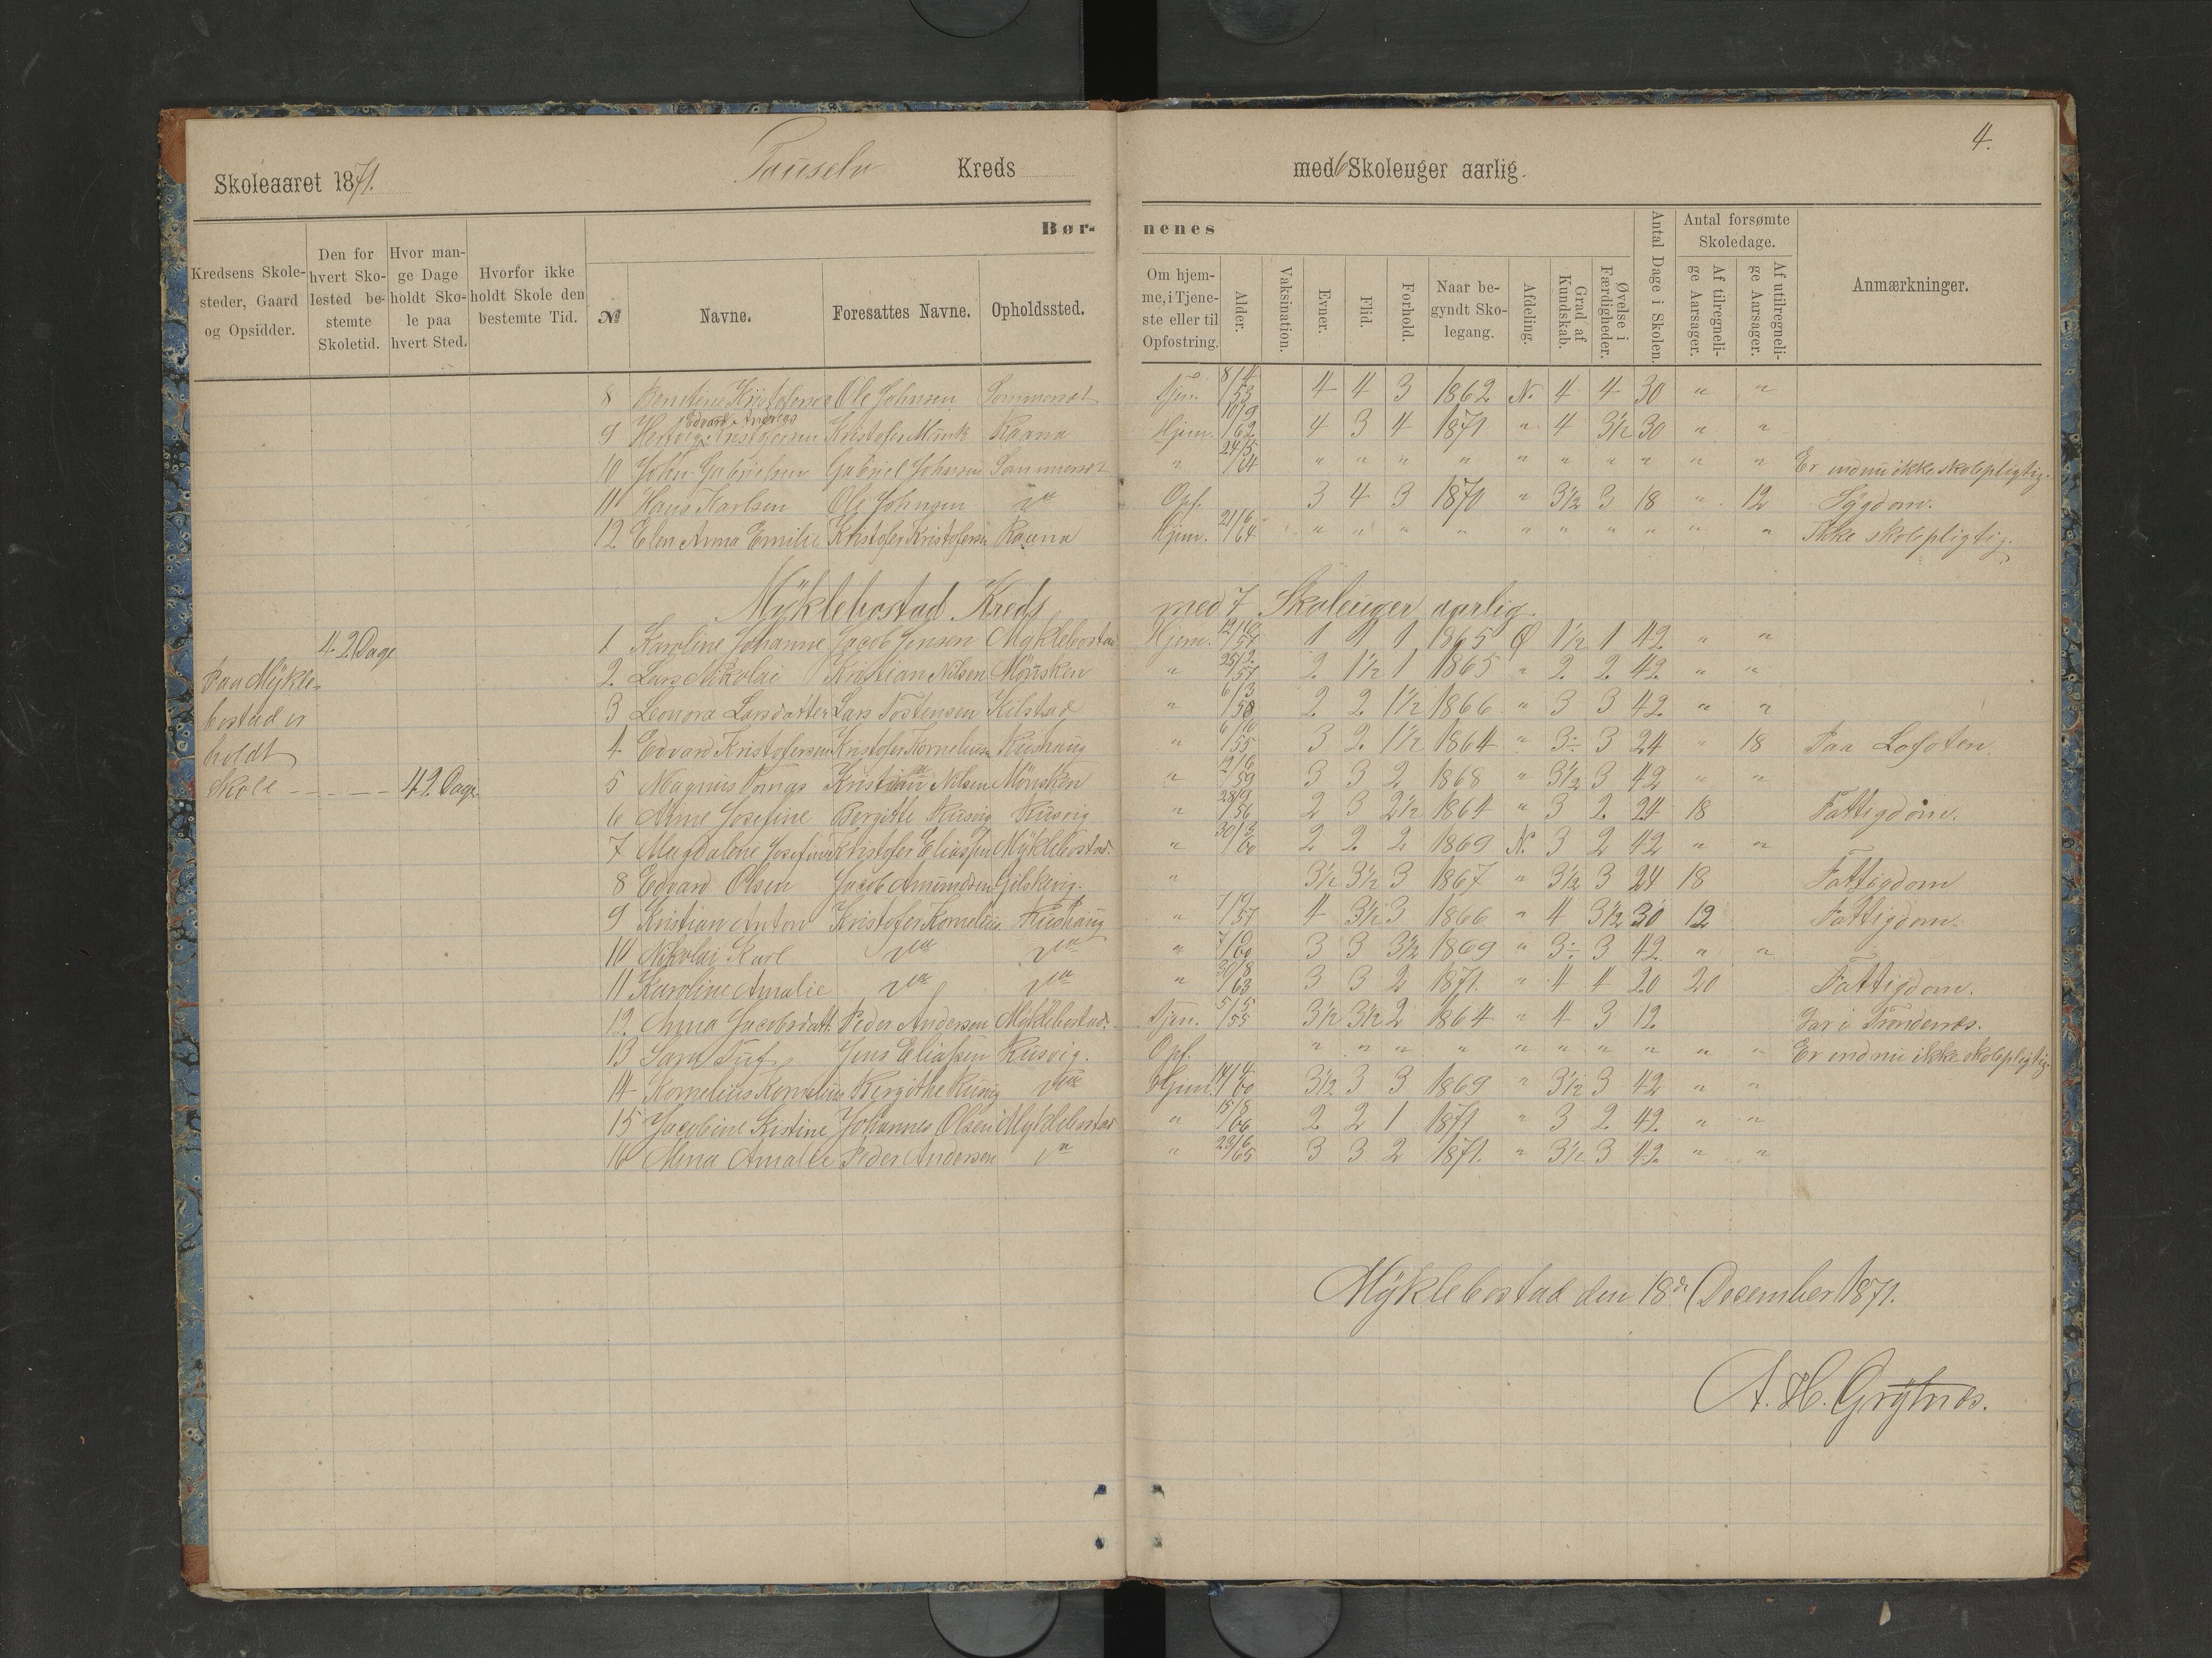 4.
Skoleaaret 1871. Tauselv Kreds med 6 Skoleuger aarlig.
Børnenes
Kredsens Skolesteder, Gaard og Opsidder. Den for hvert Skolested bestemte Skoletid. Hvor mange Dage holdt Skole paa hvert Sted. Hvorfor ikke holdt Skole den bestemte Tid. № Navne. Foresattes Navne. Opholdssted. Om hjemme, i Tjeneste eller til Opfostring. Alder. Vaksination. Evner. Flid. Forhold. Naar begyndt Skolegang. Afdeling. Grad af Kundskab. Øvelse i Færdigheder. Antal Dage i Skolen. Antal forsømte Skoledage. Af tilregnelige Aarsager. Af utilregnelige Aarsager. Anmærkninger.
8 Kristofersen Ole Johnsen Sommerset Tjen. 8/4/53 4 4 3 1862 N. 4 4 30 " "
Edvard Andreas
9 Hertvig Kristofersen Kristofer Munk Raana Hjem. 10/9/62 4 3 4 1871 " 4 3½ 30 " "
10 John Gabrielsen Gabriel Johnsen Sommerset " 24/5/64 " " " " " " " " " " Er endnu ikke skolepligtig.
11 Hans Karlsen Ole Johnsen Opf. 3 4 3 1870 " 3½ 3 18 " 12 Sygdom.
12 Elen Anna Emilie Kristofer Kristofersen Raana Hjem. 21/6/64 " " " " " " " " " " Ikke skolepligtig.
Myklebostad Kreds med 7 Skoleuger aarlig.
42 Dage 1 Karoline Johanne Jacob Jensen Myklebostad Hjem. 12/10/57 1 1 1 1865 Ø 1½ 1 42 " "
Paa Mykle- 2. Lars Nikolai Kristian Nilsen Mönsken " 25/2/57 2. 1½ 1 1865 " 2. 2. 42. " "
bostad er 3 Leonora Larsdatter Lars Tostensen Kilstad " 6/3/58 2. 2. 1½ 1866 " 3 3 42. " "
holdt 4 Edvard Kristofersen Kristofer Korneliusen Rushaug " 6/10/55 3 2. 1½ 1864 " 3÷ 3 24 " 18 Paa Lofoten.
Skole 42 Dage 5 Magnus Tomas Kristian Nilsen Mönsken " 12/6/59 3 3 2 1868 " 3½ 3 42 " "
6 Arne Josefine Bergitte Rusvig Rusvig " 28/9/56 2 3 2½ 1864 " 3 2. 24 18 Fattigdom.
7 Magdalene Josefine Kristofer Eliassen Myklebostad. " 30/3/60 2 2. 2 1869 N. 3 2 42 " "
8 Edvard Olsen Jacob Amundsen Gilskevig. " 3½ 3½ 3 1867 " 3½ 3 24 18 Fattigdom
9 Kristian Anton Kristofer Kornelius. Rushaug " /57 4 3½ 3 1866 " 4 3½ 30 12 Fattigdom.
10 Nikolai Karl " /60 3 3 3½ 1869 " 3÷ 3 42. " "
11 Karoline Amalie " 30/8/63 3 3 2 1871. " 4 4 20 20 Fattigdom.
12. Anna Jacobsdatt. Peder Andersen Myklebostad. Tjen. 5/5/55 3½ 3½ 2 1864 " 4 3 12. Var i Trondenæs.
13 Jens Eliassen Rusvig. Opf. " " " " " " " " " " Er endnu ikke skolepligtig
14 Kornelius Kornelius Bergithe Rusvig Hjem. 3½ 3 3 1869 " 3½ 3 42 " "
15 Jacobine Kistine Johannes Olsen Myklebostad " 15/8/66 2 2 1 1871 " 3 2 42. " "
16 Anna Amalie Peder Andersen " 23/6/65 3 3 2 1871. " 3½ 3 42. " "
Myklebostad den 18de December 1871.
A. H. Grytnæs.